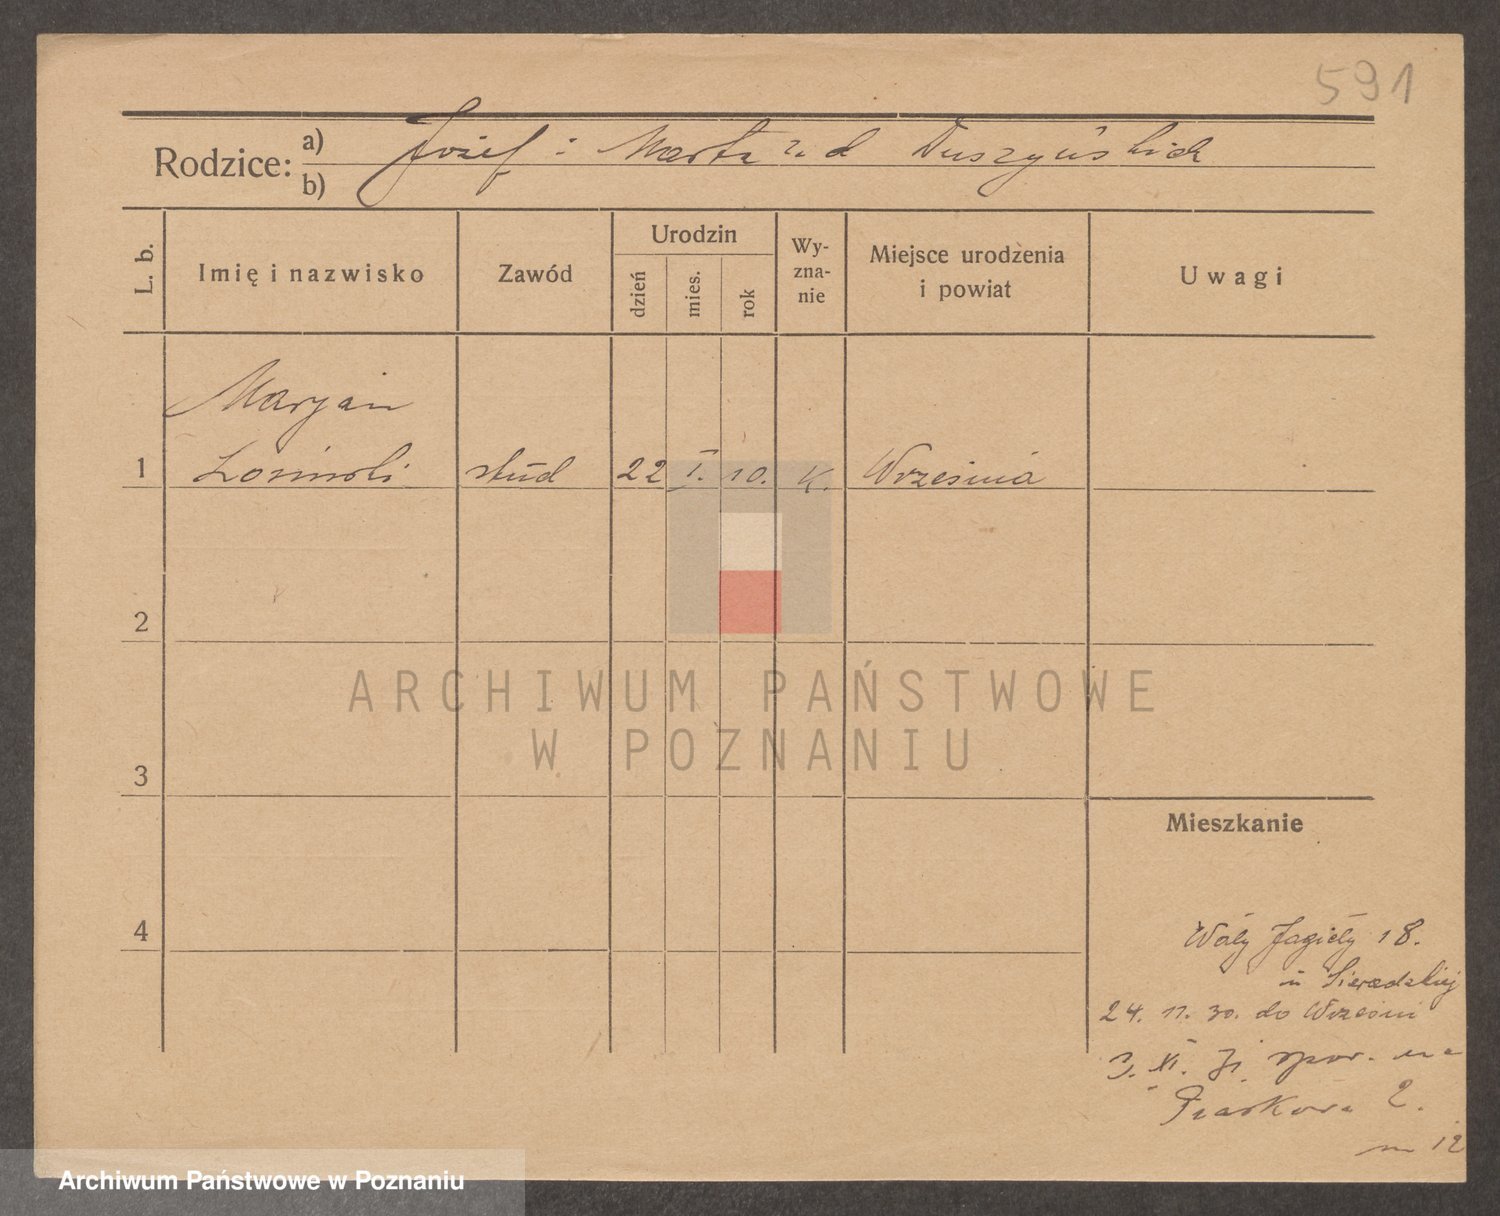 591
Rodzice: a) Józef i Marta z d Duszyńskich
b)
L. b.
Imię i nazwisko
Zawód
Urodzin
dzień
mies.
rok
Wy-
zna-
nie
Miejsce urodzenia
i powiat
Uwagi
Maryan
1 Łosinski stud 22 I. 10. K. Września
2
ARCHIWUM PAŃSTWOWE
W POZNANIU
3
Mieszkanie
4
Wały Jagiełły 18.
u Sieradzkiej
24. 11. 30. do Wrześni
3. XI. 31 spow. na
Piaskowa 2.
m 12
Archiwum Państwowe w Poznaniu